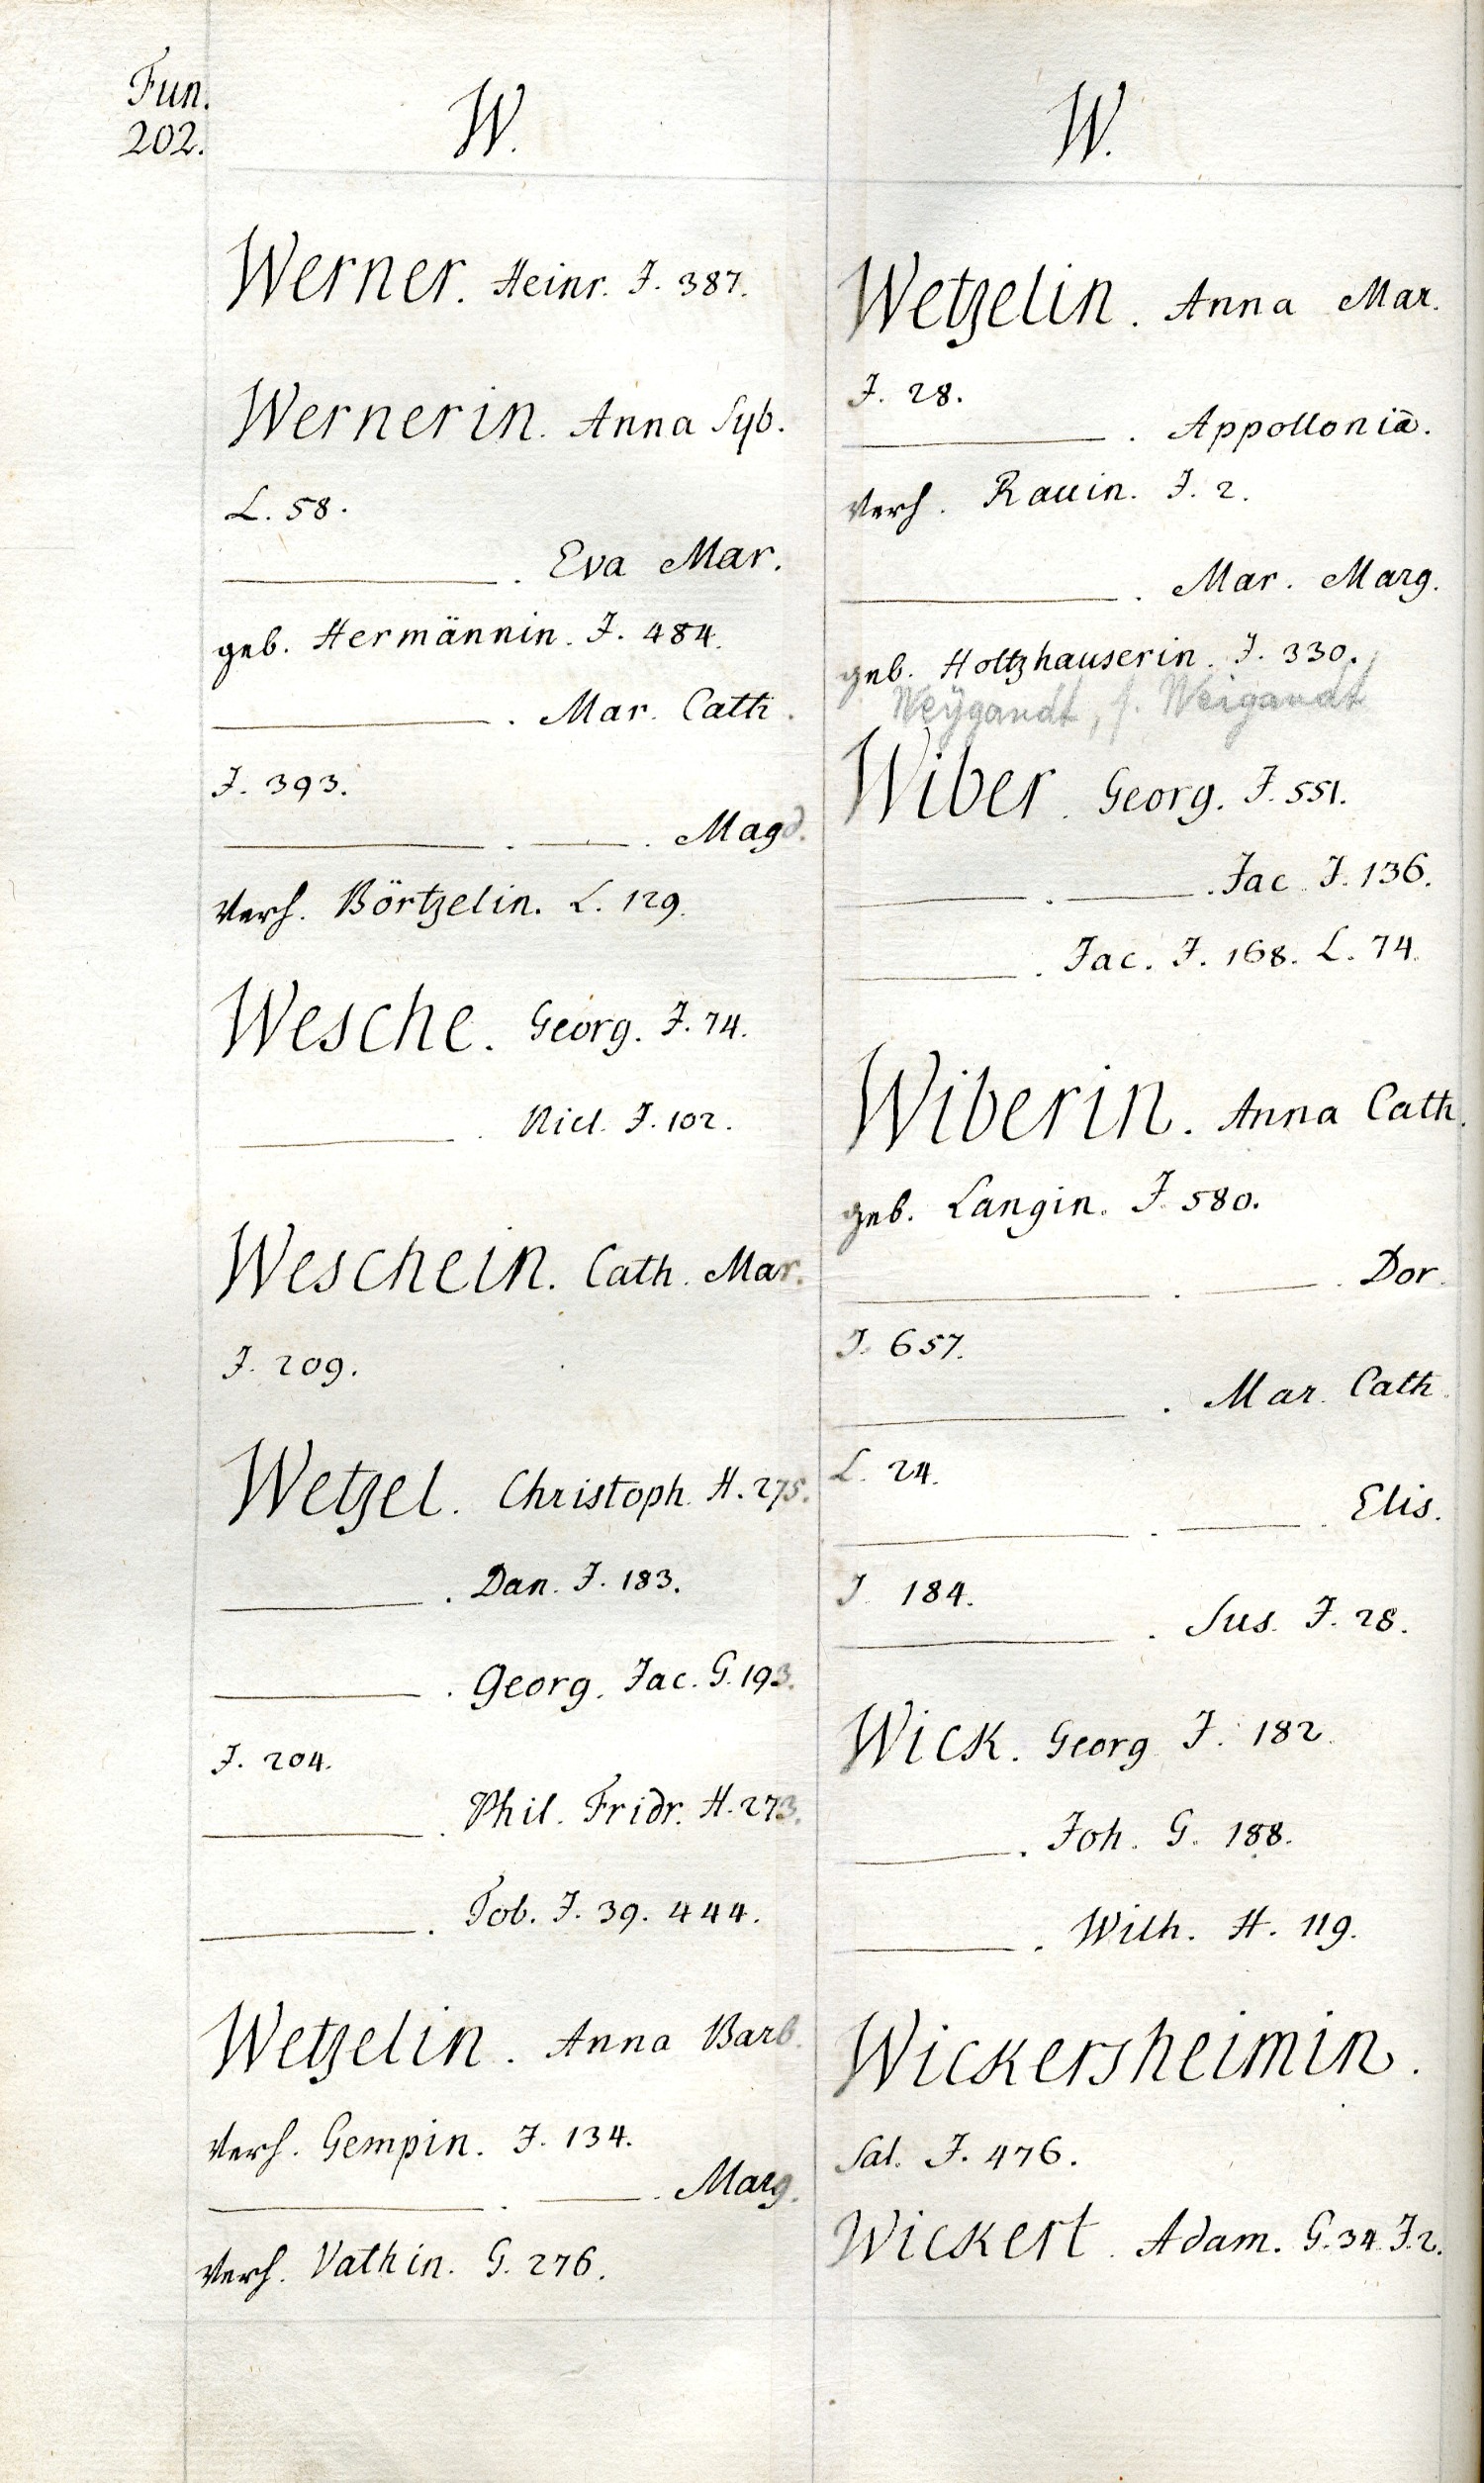 Fun.
202.
W.
Werner. Heinr. J. 387.
Wernerin. Anna Syb.
L. 58.
———. Eva Mar.
geb. Hermännin. J. 484.
———. Mar. Cath.
J. 393.
———. ———. Magd.
verh. Börtzelin. L. 129.
Wesche. Georg. J. 74.
———. Nicl. J. 102.
Weschein. Cath. Mar.
J. 209.
Wetzel. Christoph. H. 275.
———. Dan. J. 183.
———. Georg. Jac. G. 193.
J. 204.
———. Phil. Fridr. H. 273.
———. Tob. J. 39. 444.
Wetzelin. Anna Barb.
verh. Gempin. J. 134.
———. ———. Marg.
verh. Vathin. G. 276.
W.
Wetzelin. Anna Mar.
J. 28.
———. Appollonia.
verh. Rauin. J. 2.
———. Mar. Marg.
geb. Holtzhauserin. J. 330.
Weÿgandt, s. Weigandt
Wiber. Georg. J. 551.
———. ———. Jac. J. 136.
———. Jac. J. 168. L. 74.
Wiberin. Anna Cath.
geb. Langin. J. 580.
———. ———. Dor.
J. 657.
———. Mar. Cath.
L. 24.
———. ———. Elis.
J. 184.
———. Sus. J. 28.
Wick. Georg. J. 182.
———. Joh. G. 188.
———. Wilh. H. 119.
Wickersheimin.
Sal. J. 476.
Wickert. Adam. G. 34. J. 2.